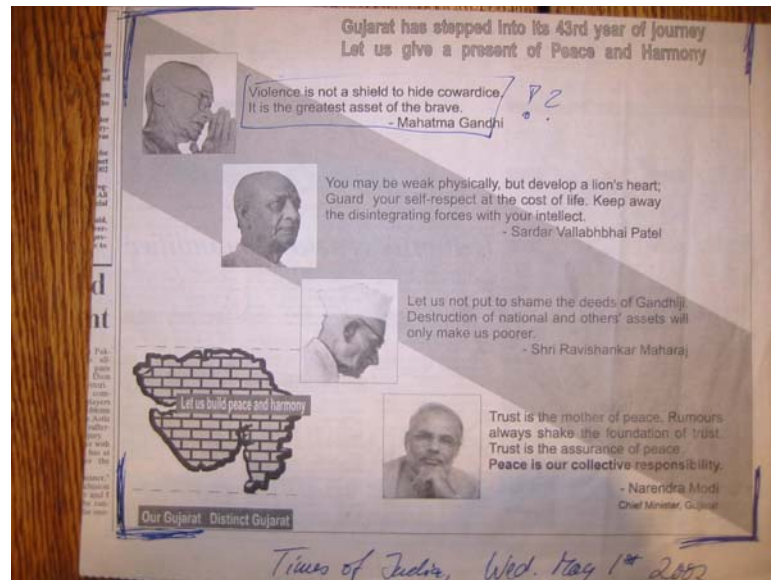 Gujarat has stepped into its 43rd year of journey
Let us give a present of Peace and Harmony
Violence is not a shield to hide cowardice.
It is the greatest asset of the brave.
- Mahatma Gandhi
!?
You may be weak physically, but develop a lion's heart;
Guard your self-respect at the cost of life. Keep away
the disintegrating forces with your intellect.
- Sardar Vallabhbhai Patel
Let us not put to shame the deeds of Gandhiji.
Destruction of national and others' assets will
only make us poorer.
- Shri Ravishankar Maharaj
Let us build peace and harmony
Trust is the mother of peace. Rumours
always shake the foundation of trust.
Trust is the assurance of peace.
Peace is our collective responsibility.
- Narendra Modi
Chief Minister, Gujarat
Our Gujarat Distinct Gujarat
Times of India, Wed. May 1st